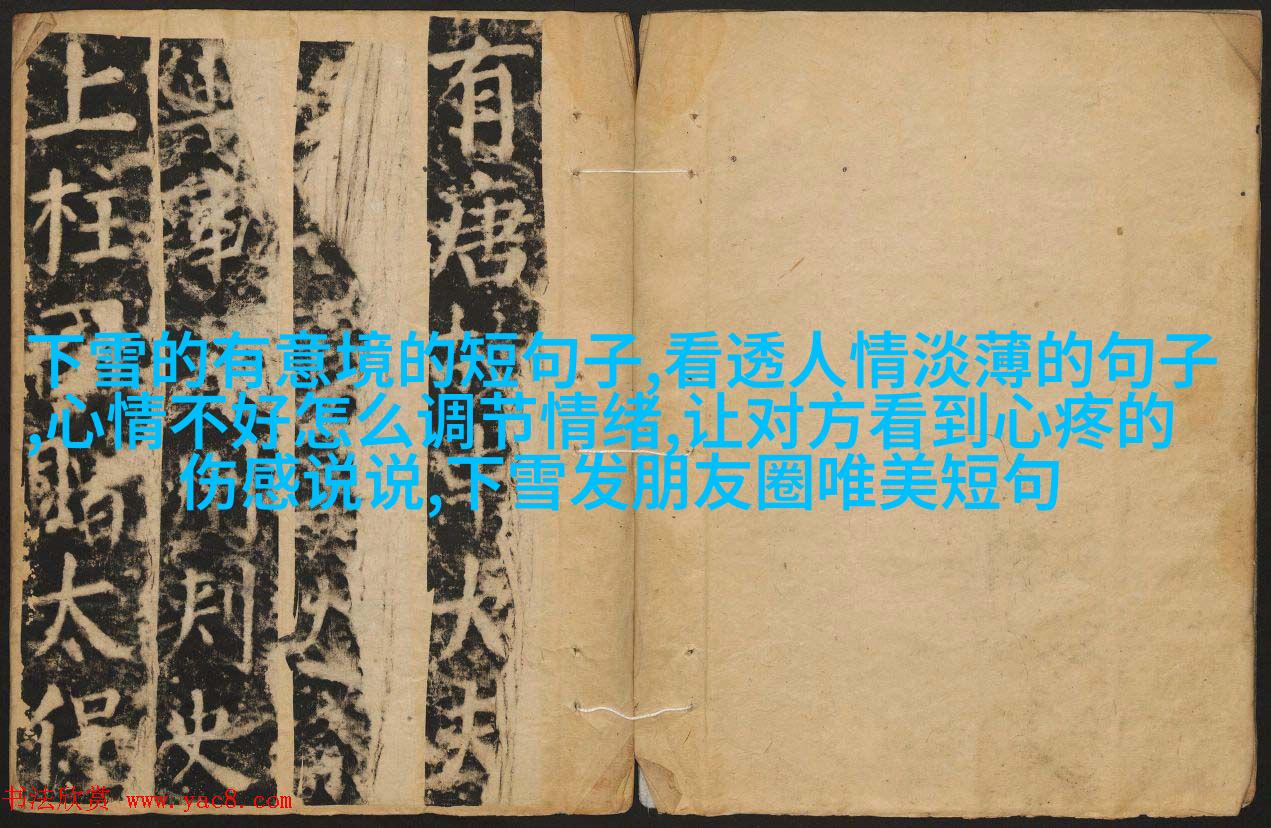 有唐
大夫
軍
州刺史
上柱國
贈太保
下雪的有意境的短句子,看透人情淡薄的句子
,心情不好怎么调节情绪,让对方看到心疼的
伤感说说,下雪发朋友圈唯美短句
书法欣赏 www.yac8.com